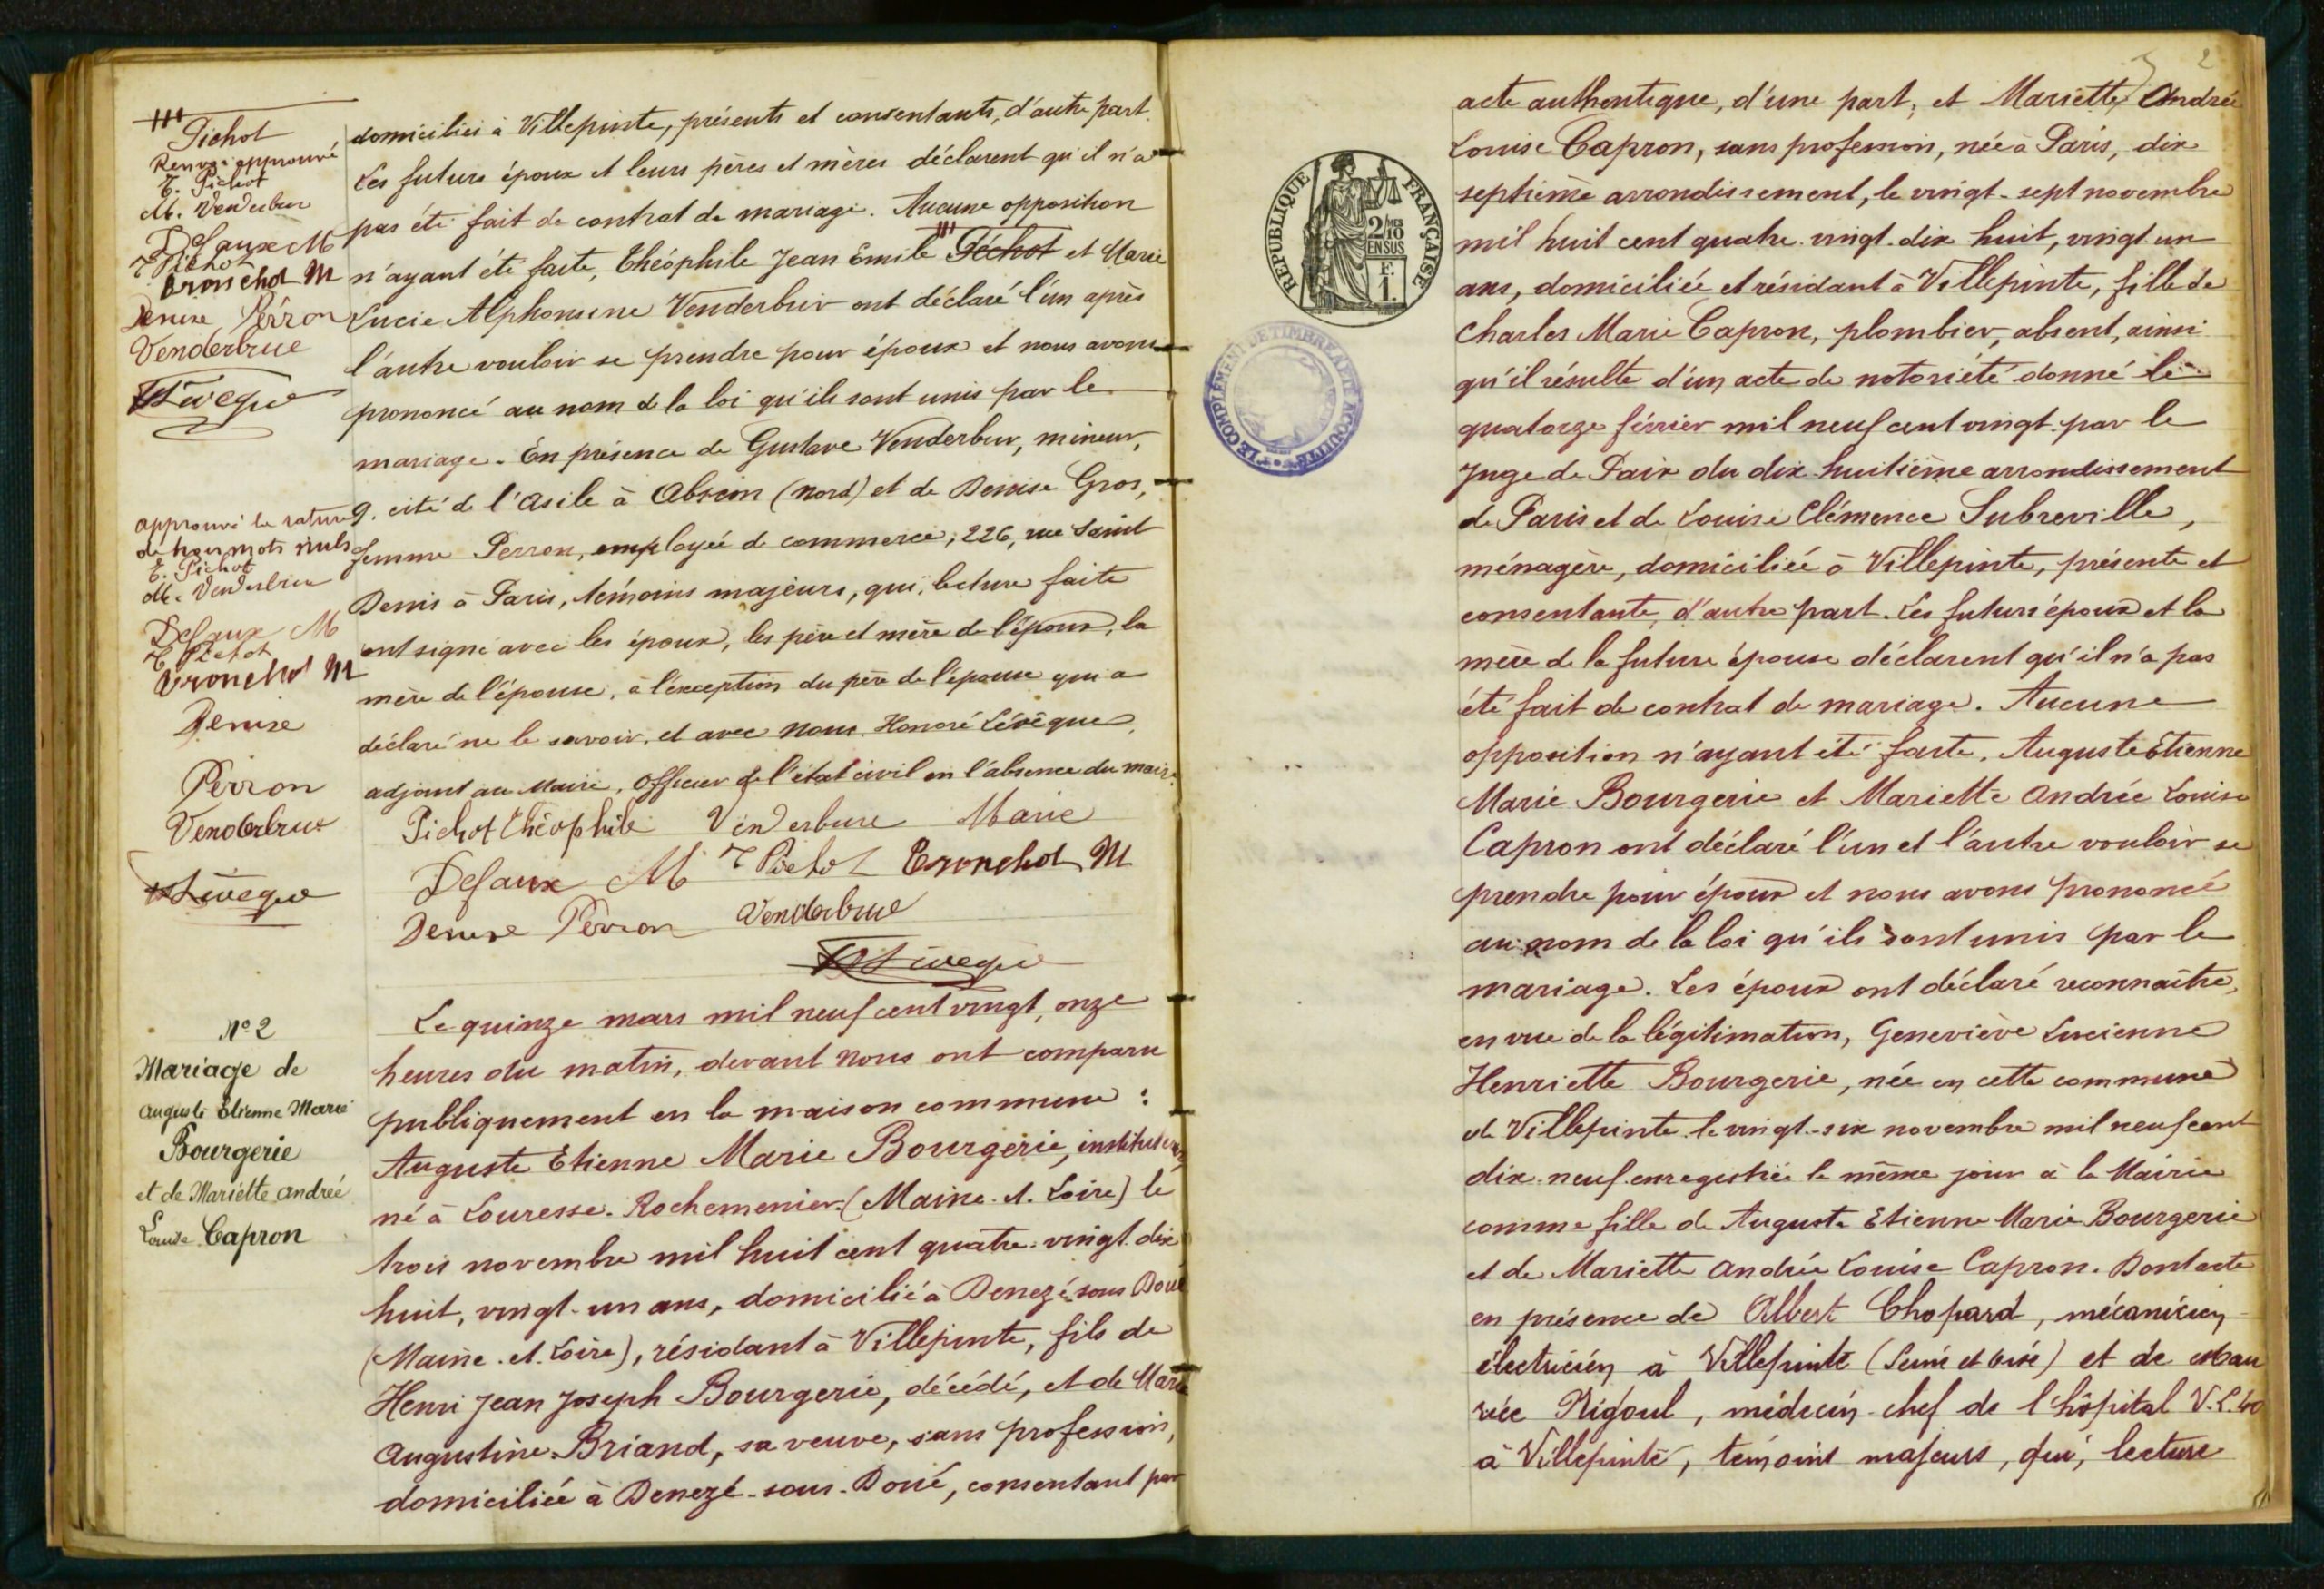 Pichot
Renvoi approuvé
E. Pichot
M. Venderbur
Defaux M
T Pichot
Tronchot M
Denise Perron
Venderbrue
HLévêque
approuvé la rature
de mots nuls
E. Pichot
M. Venderbur
Defaux M
T Pichot
Tronchot M
Denise
Perron
Venderbrue
HLévêque
domiciliés à Villepinte, présents et consentants, d'autre part.
Les futurs époux et leurs pères et mères déclarent qu'il n'a
pas été fait de contrat de mariage. Aucune opposition
n'ayant été faite, Théophile Jean Emile Féchot et Marie
Lucie Alphonsine Venderbur ont déclaré l'un après
l'autre vouloir se prendre pour époux et nous avons
prononcé au nom de la loi qu'ils sont unis par le
mariage. En présence de Gustave Venderbur, mineur,
9. cité de l'asile à Abscon (Nord) et de Denise Gros,
femme Perron, employée de commerce, 226, rue Saint
Denis à Paris, témoins majeurs, qui, lecture faite
ont signé avec les époux, les père et mère de l'époux, la
mère de l'épouse, à l'exception du père de l'épouse qui a
déclaré ne le savoir, et avec nous Honoré Lévêque,
adjoint au Maire, Officier de l'état civil en l'absence du maire.
Pichot Théophile Venderbure Marie
Defaux M T Pichot Tronchot M
Denise Perron Venderbrue
HLévêque
N° 2
Mariage de
Auguste Etienne Marie
Bourgerie
et de Mariette Andrée
Louise Capron
Le quinze mars mil neuf cent vingt, onze
heures du matin, devant nous ont comparu
publiquement en la maison commune :
Auguste Etienne Marie Bourgerie, instituteur,
né à Louresse-Rochemenier (Maine-et-Loire) le
trois novembre mil huit cent quatre-vingt dix
huit, vingt-un ans, domicilié à Denezé-sous Doué
(Maine-et-Loire), résidant à Villepinte, fils de
Henri Jean Joseph Bourgerie, décédé, et de Marie
Augustine Briand, sa veuve, sans profession,
domiciliée à Denezé-sous-Doué, consentant par
2
REPUBLIQUE FRANÇAISE
2/10
EN SUS
F.
1.
LE COMPLÉMENT DE TIMBRE A ÉTÉ ACQUITTÉ
acte authentique, d'une part, et Mariette Andrée
Louise Capron, sans profession, née à Paris, dix
septième arrondissement, le vingt-sept novembre
mil huit cent quatre-vingt-dix huit, vingt-un
ans, domiciliée et résidant à Villepinte, fille de
Charles Marie Capron, plombier, absent, ainsi
qu'il résulte d'un acte de notoriété donné le
quatorze février mil neuf cent vingt par le
Juge de Paix du dix-huitième arrondissement
de Paris et de Louise Clémence Subreville,
ménagère, domiciliée à Villepinte, présente et
consentante, d'autre part. Les futurs époux et la
mère de la future épouse déclarent qu'il n'a pas
été fait de contrat de mariage. Aucune
opposition n'ayant été faite, Auguste Etienne
Marie Bourgerie et Mariette Andrée Louise
Capron ont déclaré l'un et l'autre vouloir se
prendre pour époux et nous avons prononcé
au nom de la loi qu'ils sont unis par le
mariage. Les époux ont déclaré reconnaître,
en vue de la légitimation, Geneviève Lucienne
Henriette Bourgerie, née en cette commune
de Villepinte le vingt-six novembre mil neuf cent
dix-neuf enregistrée le même jour à la Mairie
comme fille de Auguste Etienne Marie Bourgerie
et de Mariette Andrée Louise Capron. Dont acte
en présence de Albert Chopard, mécanicien
électricien à Villepinte (Seine et Oise) et de Mau
rice Rigoul, médecin-chef de l'hôpital V.L. 40
à Villepinte, témoins majeurs, qui, lecture